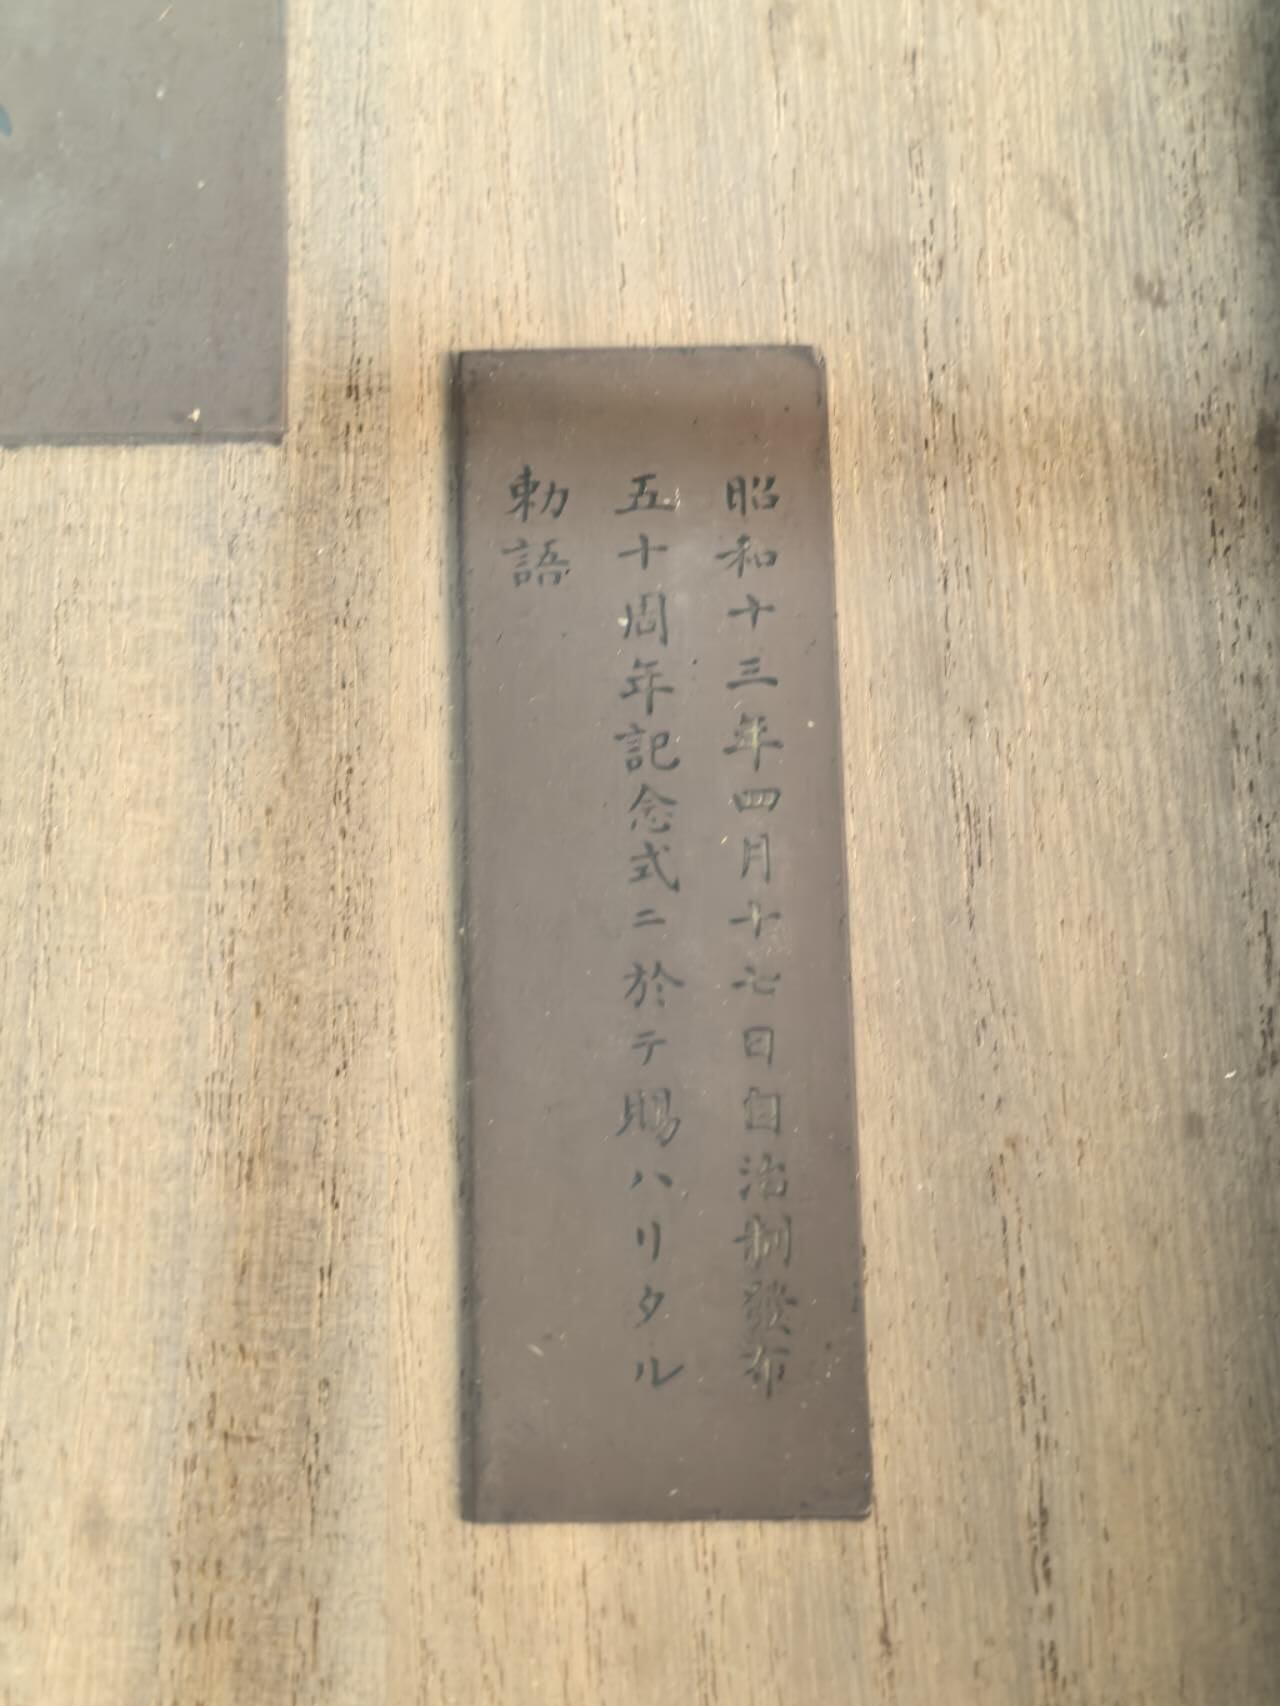 昭和十三年四月十七日自治制發布
五十周年記念式ニ於テ賜ハリタル
勅語